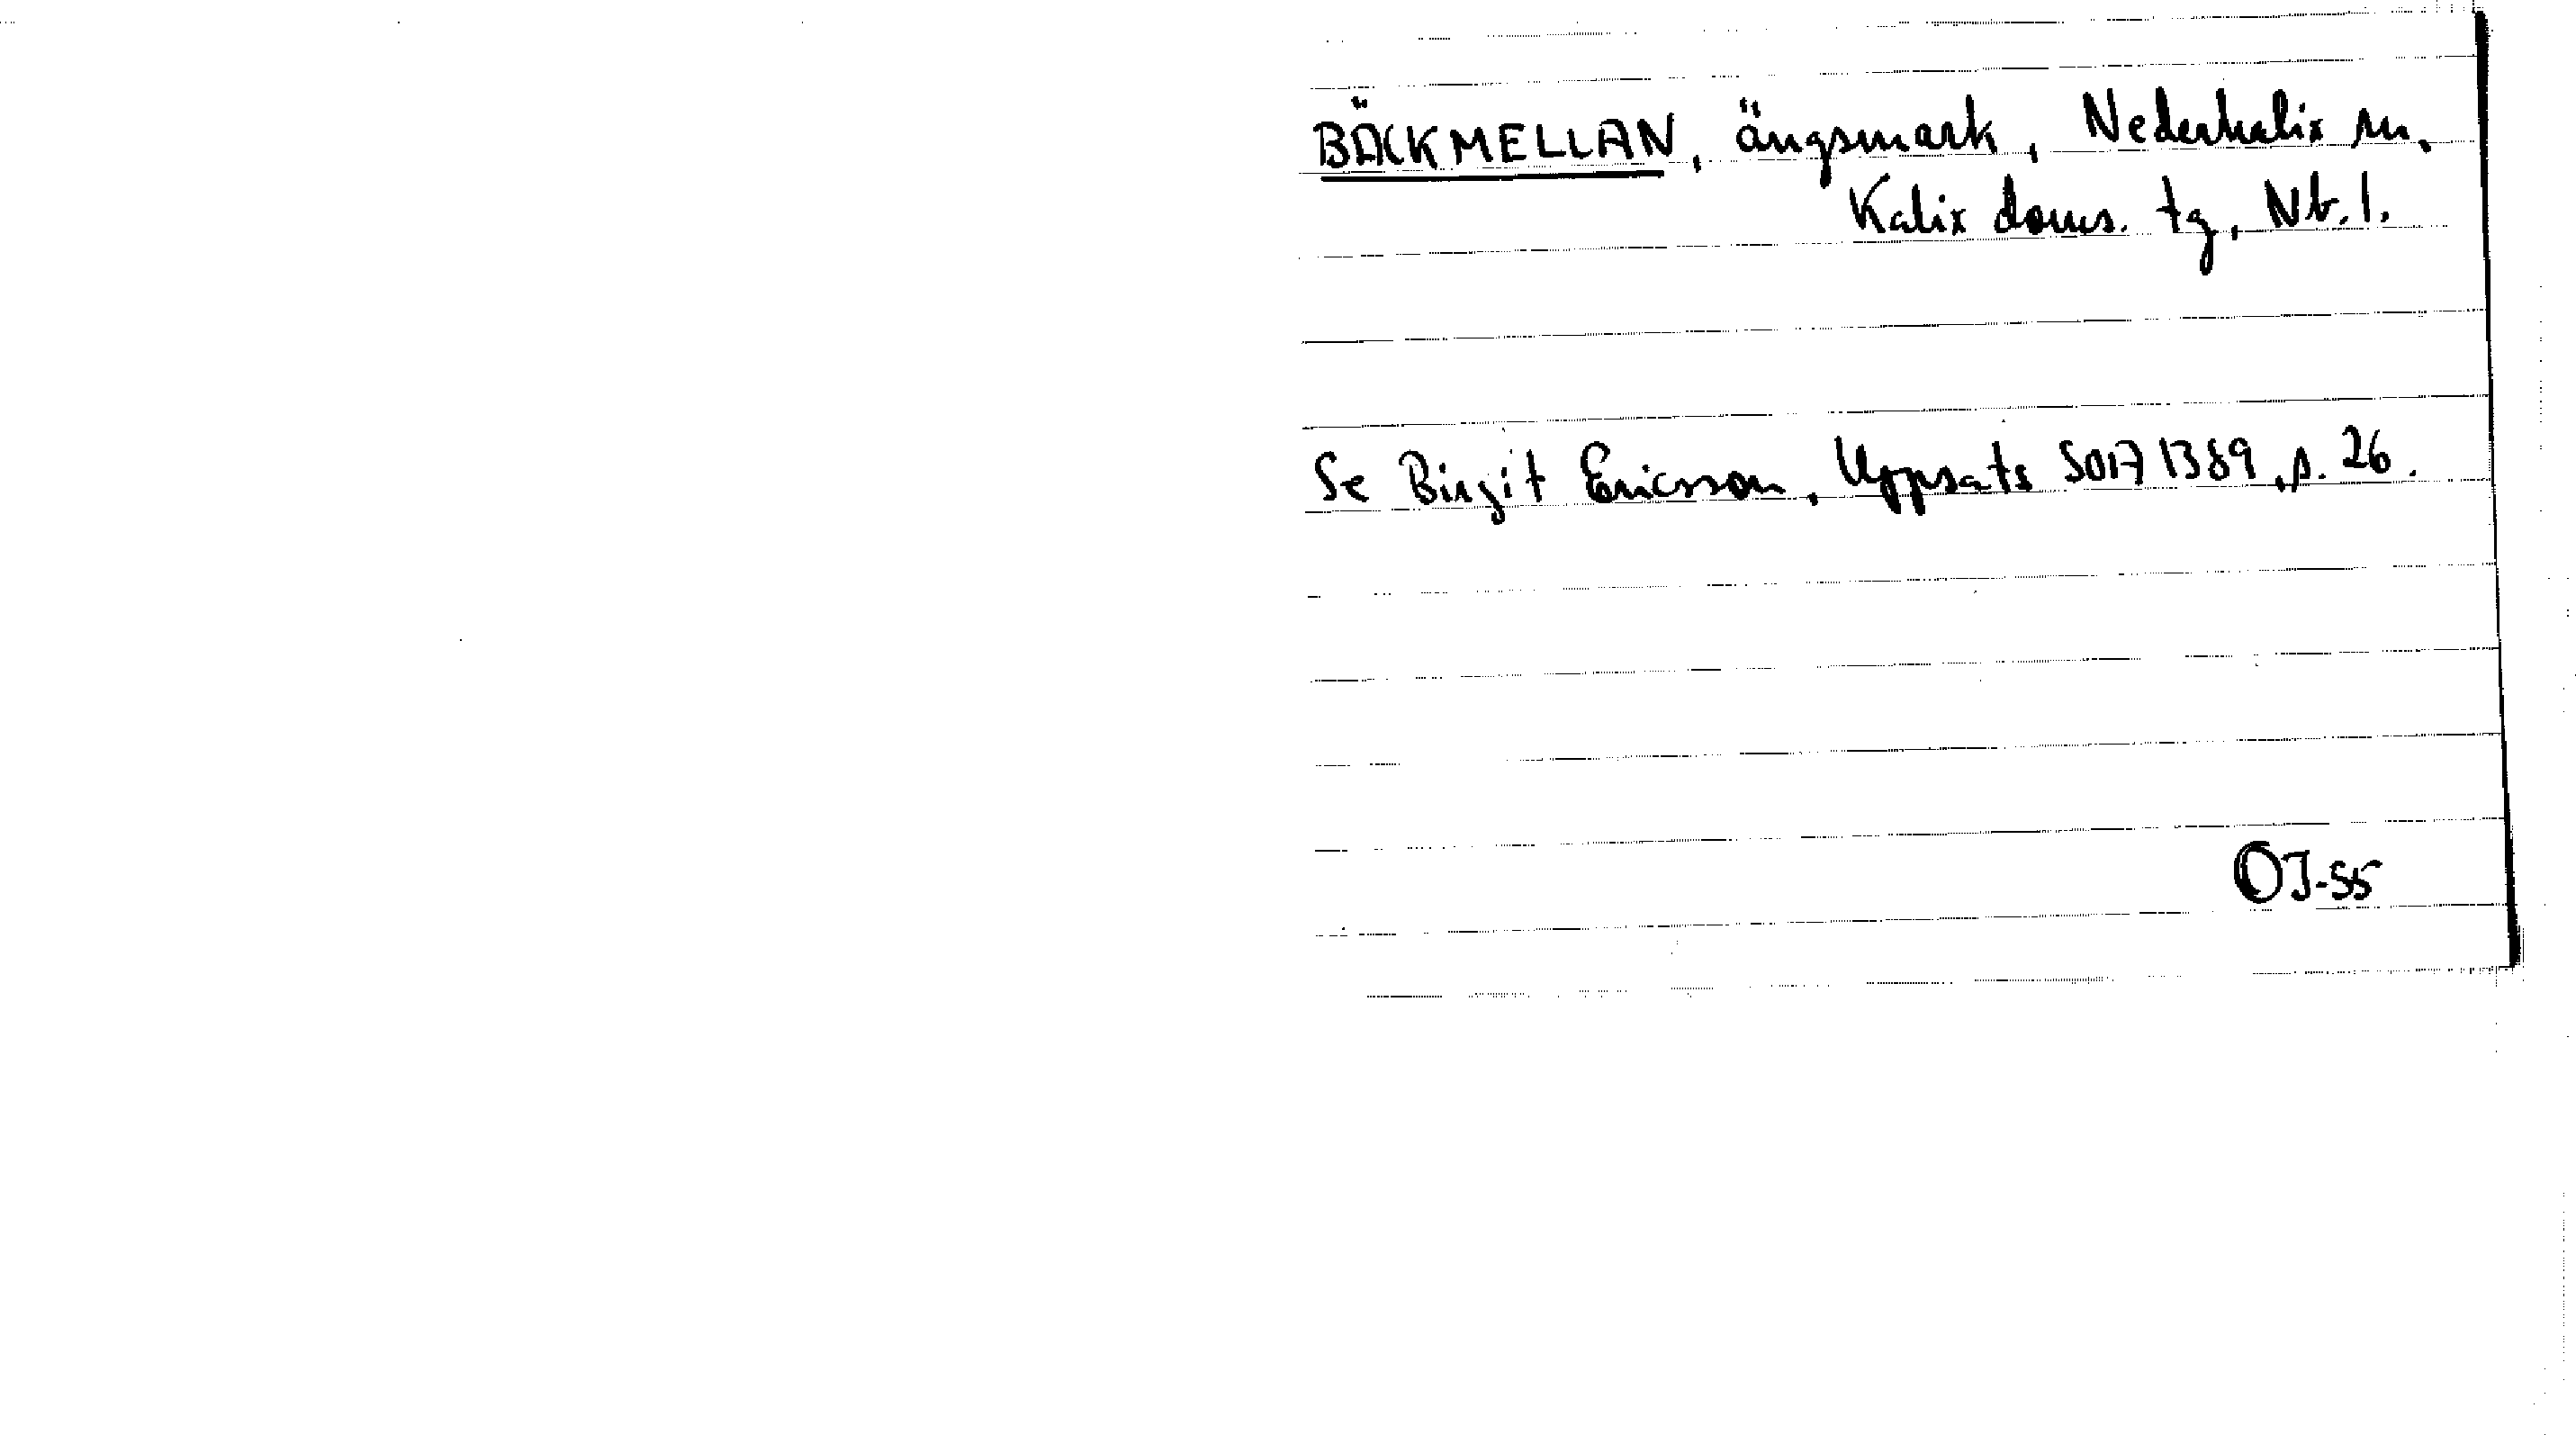 BÄCKMELLAN, ängsmark, Nederkalix sn.
Kalix doms. tg, Nb. l.
Se Birgit Ericsson, Uppsats SOA 1389, s. 26.
OJ-55